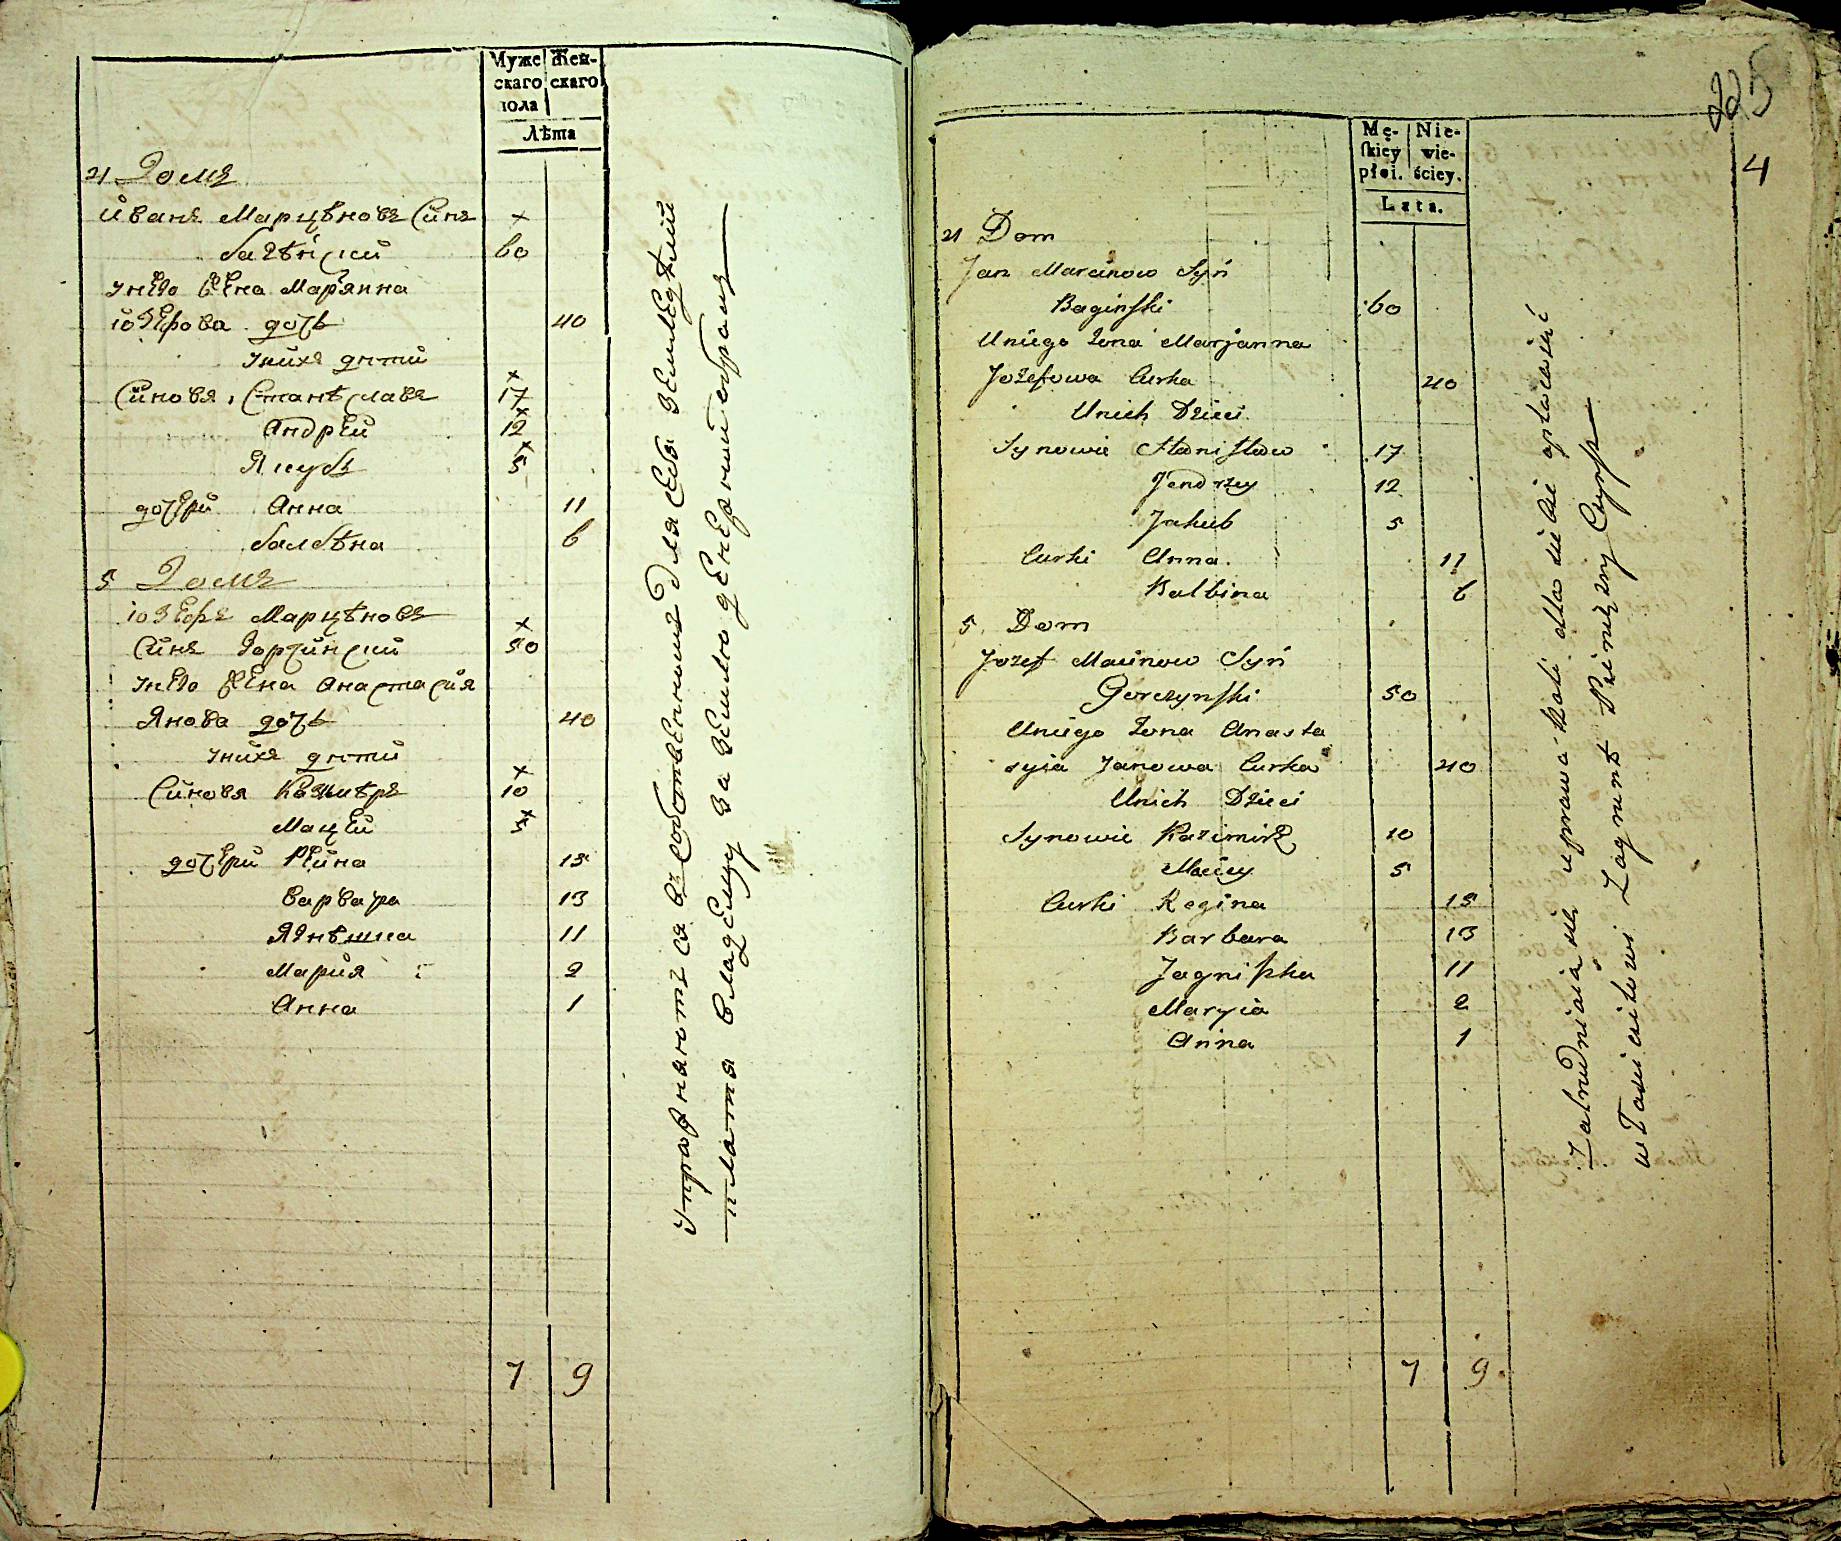 Муже Жен-
скаго скаго
пола
Лѣта
4 Домъ
Иванъ Марцѣновъ Синъ ×
Багѣнский 60
Унего Жена Марянна
Іозефова дочь 40
Унихъ дѣти ×
Синовя Станѣславъ 17 ×
Андрей 12 ×
Якубъ 5
дочери Анна 11
Балбѣна 6
5 Домъ
Іозефъ Марцѣновъ ×
Синъ Горчинский 50
Унего Жена Анастасия
Янова дочь 40
Унихъ дѣти ×
Синовя Казимѣръ 10
Мацей 5 ×
дочери Регина 15
Варвара 13
Ягнѣшка 11
Мария 2
Анна 1
Упражняются въ Собственномъ для себя земледѣлии
плата владелцу за землю денежний обрацъ
7 9
225
4
Mę- Nie-
skiey wie-
płci. ściey.
Lata.
4 Dom
Jan Marcinow Syń
Baginski 60
Uniego Żona Marjanna
Jozefowa Curka 40
Unich Dzieci
Synowie Stanisław 17
Jendrzy 12
Jakub 5
Curki Anna 11
Balbina 6
5 Dom
Jozef Macinow Syń
Gorczynski 50
Uniego Żona Anasta
syia Janowa Curka 40
Unich Dzieci
Synowie Kazimirz 10
Maciey 5
Curki Regina 15
Barbara 13
Jagniszka 11
Maryia 2
Anna 1
Zatrudniaią się uprawą Roli dla siebie opłacaiąc
włascicielowi Zagrunt Pienięzny Czynsz
7 9